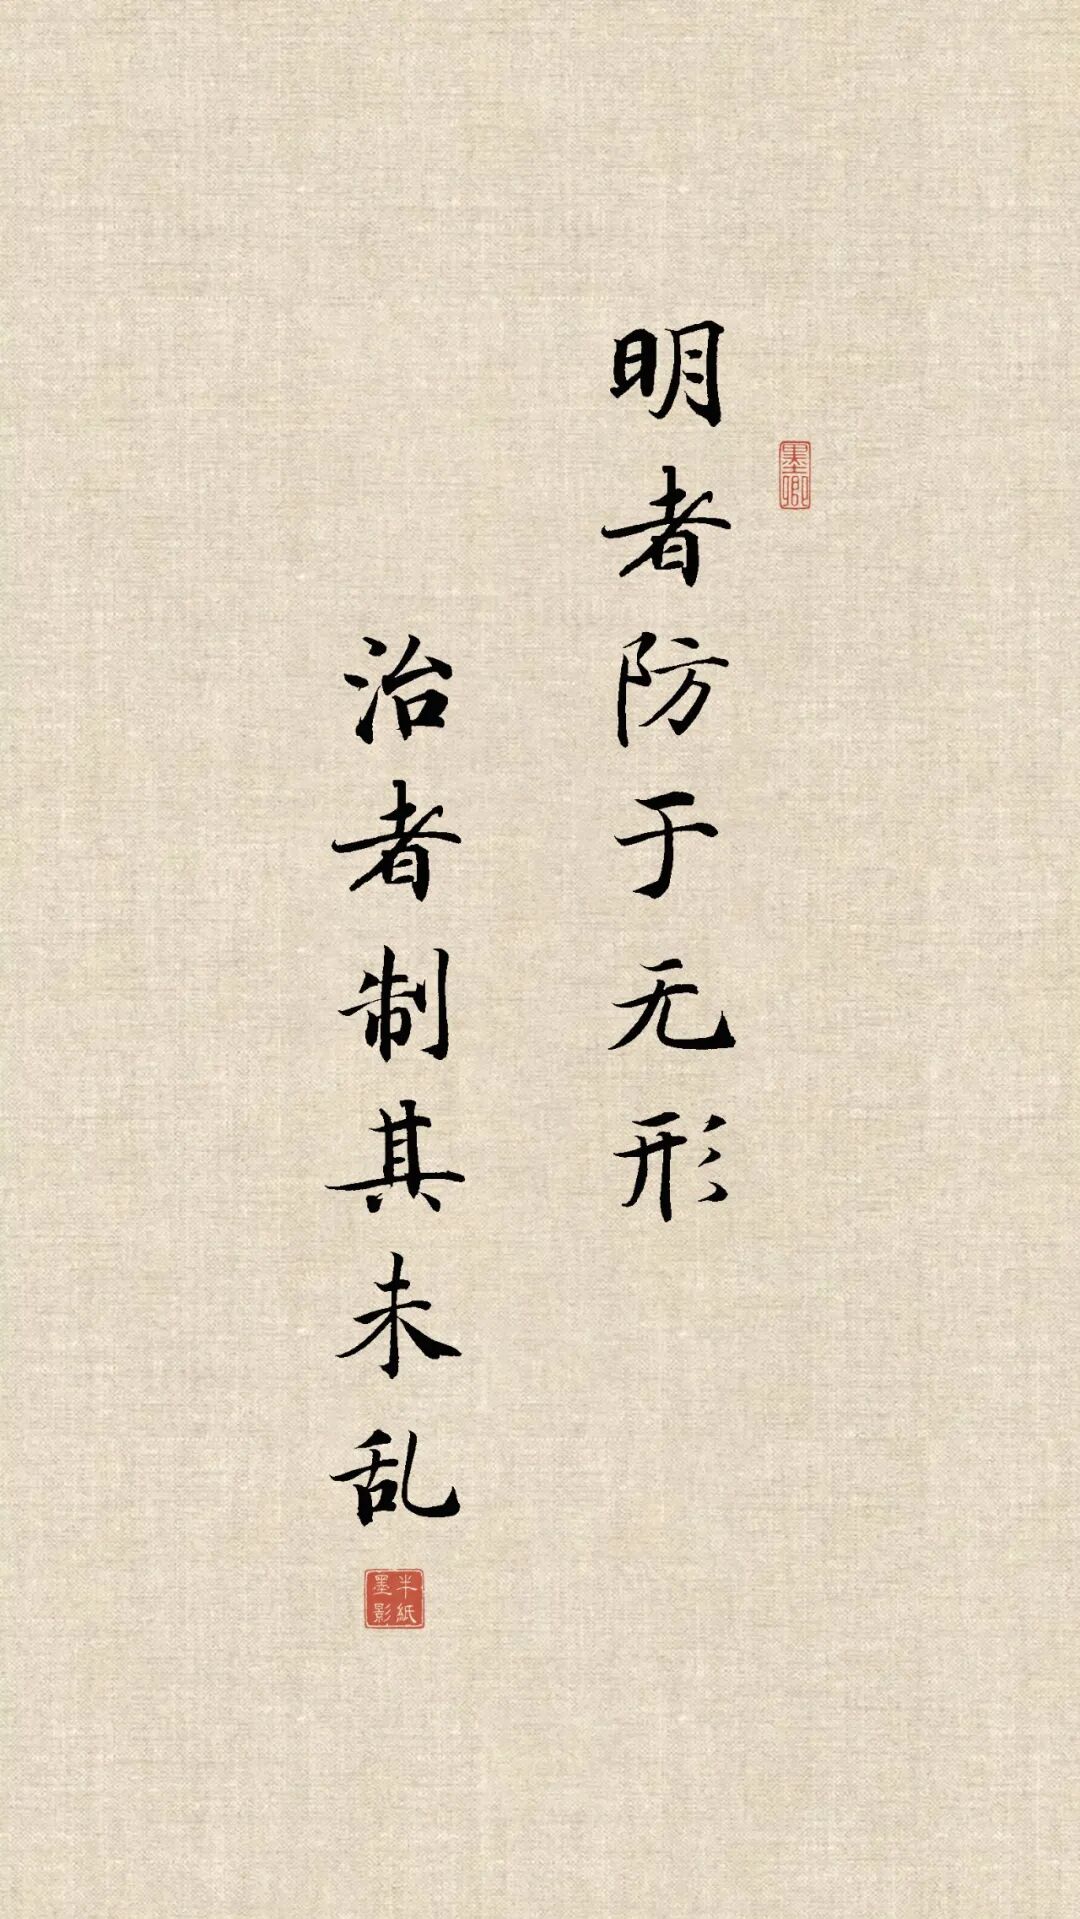 明者防于无形
治者制其未乱
墨卿
半纸墨影